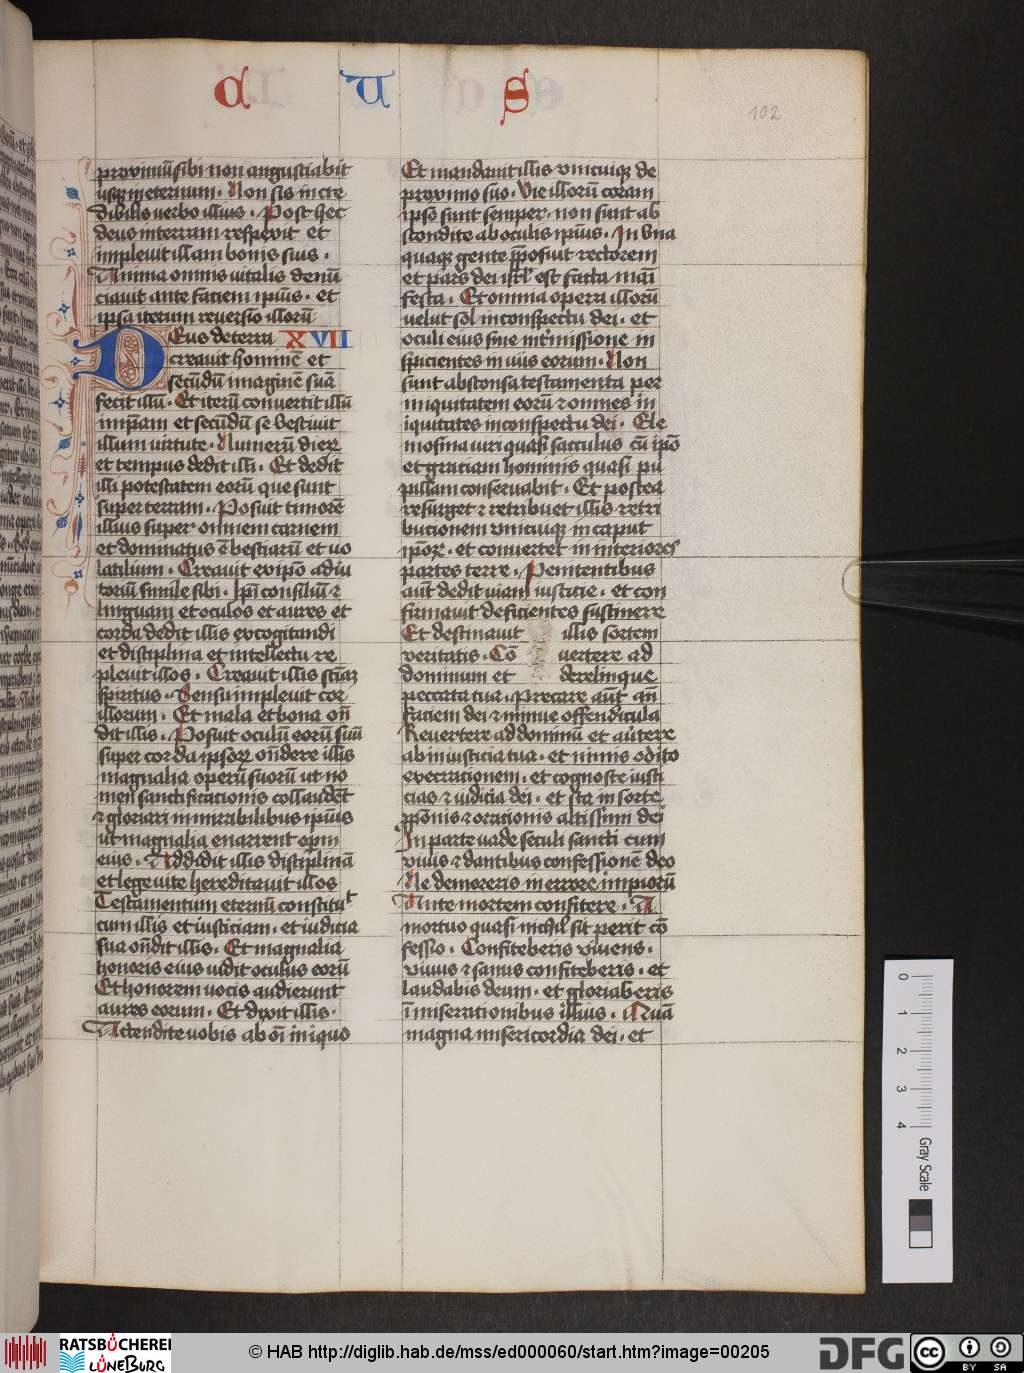 C U S
102
proximū sibi non angustiabit
usq; in eternum. Non sis incre
dibilis verbo illius. Post hec
deus in terram respexit et
impleuit illam bonis suis.
Anima omnis vitalis denū
ciauit ante faciem ipius. et
ipsa iterum reuersio illorū
DEus de terra XVII
creauit hominē et
secūdū imaginē suā
fecit illū. Et iterū conuertit illū
in ipam et secūdū se vestiuit
illum virtute. Numerū dierꝝ
et tempus dedit illi. Et dedit
illi potestatem eorū que sunt
super terram. Posuit timorē
illius super omnem carnem
et dominatus ē bestiarū et vo
latilium. Creauit ex ipo adiu
torium simile sibi. consiliū ⁊
linguam et oculos et aures et
corda dedit illis excogitandi
et disciplina et intellectu re
pleuit illos. Creauit illis sciam
spiritus. Sensu impleuit cor
illorum. Et mala et bona on̄
dit illis. Posuit oculū eorū sup
super corda ipsorꝝ on̄dere illis
magnalia operū suorū ut no
men sanctificationis collaudēt
⁊ gloriari in mirabilibus ipius
ut magnalia enarrent operum
eius. Addidit illis disciplinā
et lege vite hereditauit illos
Testamentum eternū constituit
cum illis et iusticiam. et iudicia
sua on̄dit illis. Et magnalia
honoris eius vidit oculus eorū
Et honorem vocis audierunt
aures eorum. Et dixit illis.
Attendite vobis ab oī iniquo
Et mandauit illis vnicuiq; de
proximo suo. Vie illorū coram
ipso sunt semper. non sunt ab
scondite ab oculis ipius. In vna
quaq; gente pposuit rectorem
et pars dei isrl est facta mani
festa. Et omnia opera illorū
velut sol in conspectu dei. et
oculi eius sine intmissione in
spicientes in viis eorum. Non
sunt absconsa testamenta per
iniquitatem eorū ⁊ omnes in
iquitates in conspectu dei. Ele
mosina viri quasi sacculus cū ipo
et graciam hominis quasi pu
pillam conseruabit. Et postea
resurget ⁊ retribuet illis retri
bucionem vnicuiq; in caput
ipoꝝ. et conuertet in interiores
partes terre. Penitentibus
aut dedit viam iusticie. et con
firmauit deficientes sustinere
Et destinauit illis sortem
veritatis. Cō uertere ad
dominum et derelinque
peccata tua. Precare an̄t
faciem dei ⁊ minue offendicula
Reuertere ad dominū et auertere
ab iniusticia tua. et nimis odito
execrationem. et cognosce iusti
cias ⁊ iudicia dei. et sta in sorte
pposiōnis ⁊ orationis altissimi dei
In parte vade seculi sancti cum
viuis ⁊ dantibus confessionē deo
Ne demoreris in errore impiorū
Ante mortem confitere. A
mortuo quasi nichil sit perit cō
fessio. Confiteberis viuens.
viuus ⁊ sanus confiteberis. et
laudabis deum. et gloriaberis
ī miserationibus illius. Quā
magna misericordia dei. et
0 1 2 3 4
Gray Scale
RATSBÜCHEREI
LÜNEBURG
© HAB http://diglib.hab.de/mss/ed000060/start.htm?image=00205
DFG
cc BY SA